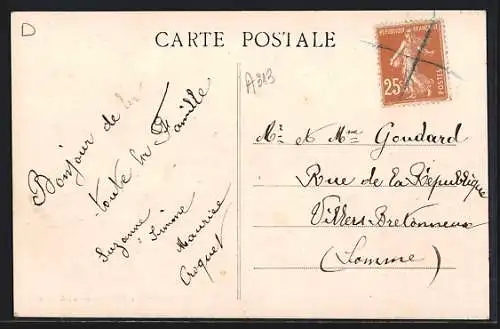 D
CARTE POSTALE
REPUBLIQUE FRANÇAISE
25c
POSTES
A313
Bonjour de
toute la Famille
Suzanne
Simone
Maurice
Croquet
Mr et Mme Goudard
Rue de la République
Villers Bretonneux
(Somme)